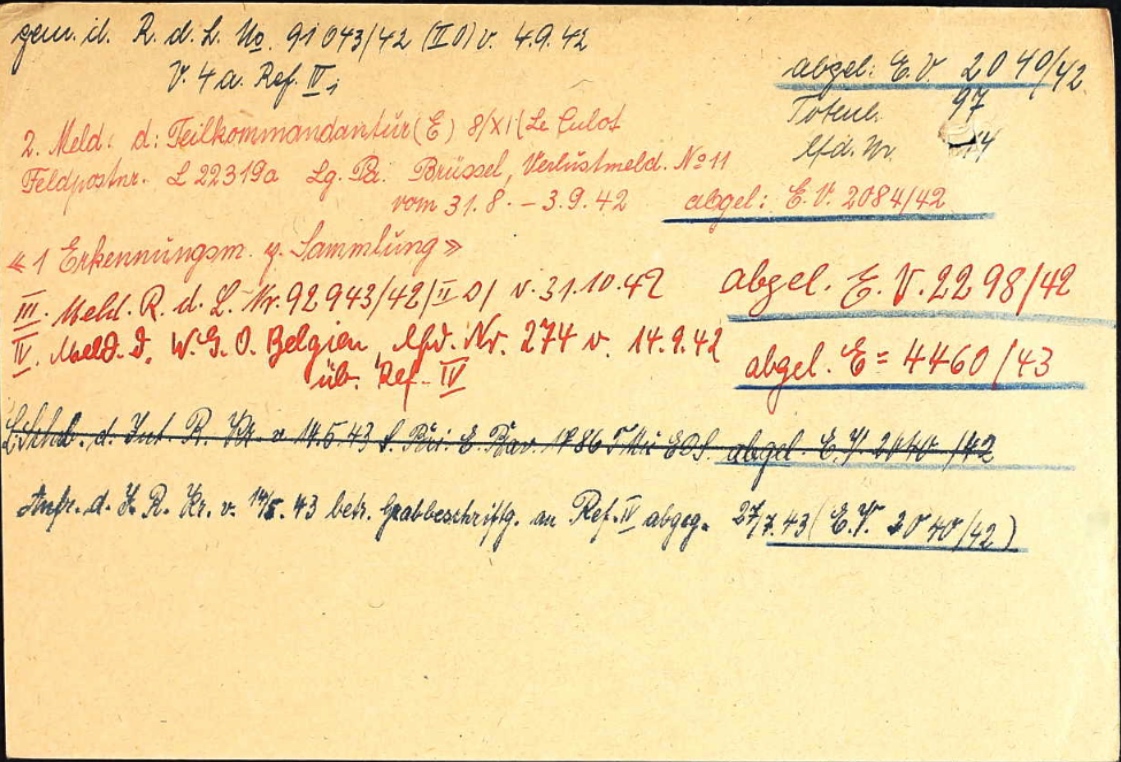 gem. d. R. d. L. No. 91043/42 (II D) v. 4.9.42
V. 4a. Ref. IV,
abgel: E.V. 2040/42
Totenl. 97
lfd. Nr. 14
2. Meld: d: Feilkommandantur (E) 8/XI (Le Culot
Feldpostnr. L 22319a Lg. Pa. Brüssel, Verlustmeld. No 11
vom 31.8. – 3.9.42 abgel: E.V. 2084/42
« 1 Erkennungsm. z. Sammlung »
III. Meld. R. d. L. Nr. 92943/42/II D/ v. 31.10.42 abgel. E.V. 2298/42
IV. Meld. D. W.G.O. Belgien, lfd. Nr. 274 v. 14.9.42
üb. Ref. IV abgel. E = 4460/43
d. Int. R. Kr. v. 14.5.43 abgel. E.V. 2040/42
Anfr. d. I. R. Kr. v. 14/5.43 betr. Grabbeschriftg. an Ref. IV abgeg. 27/7.43 (E.V. 2040/42)